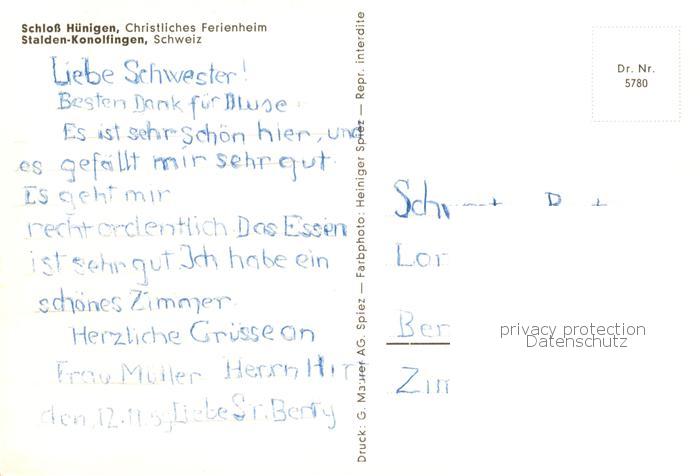 Schloß Hünigen, Christliches Ferienheim
Stalden-Konolfingen, Schweiz
Liebe Schwester!
Besten Dank für Bluse
Es ist sehr schön hier, und
es gefällt mir sehr gut
Es geht mir
recht ordentlich Das Essen
ist sehr gut Ich habe ein
schönes Zimmer
Herzliche Grüsse an
Frau Muller Herrn
den, 12. Liebe Sr. Berty
Druck: G. Maurer AG. Spiez — Farbphoto: Heiniger Spiez — Repr. interdite
Dr. Nr.
5780
Lor
Ber
privacy protection
Datenschutz